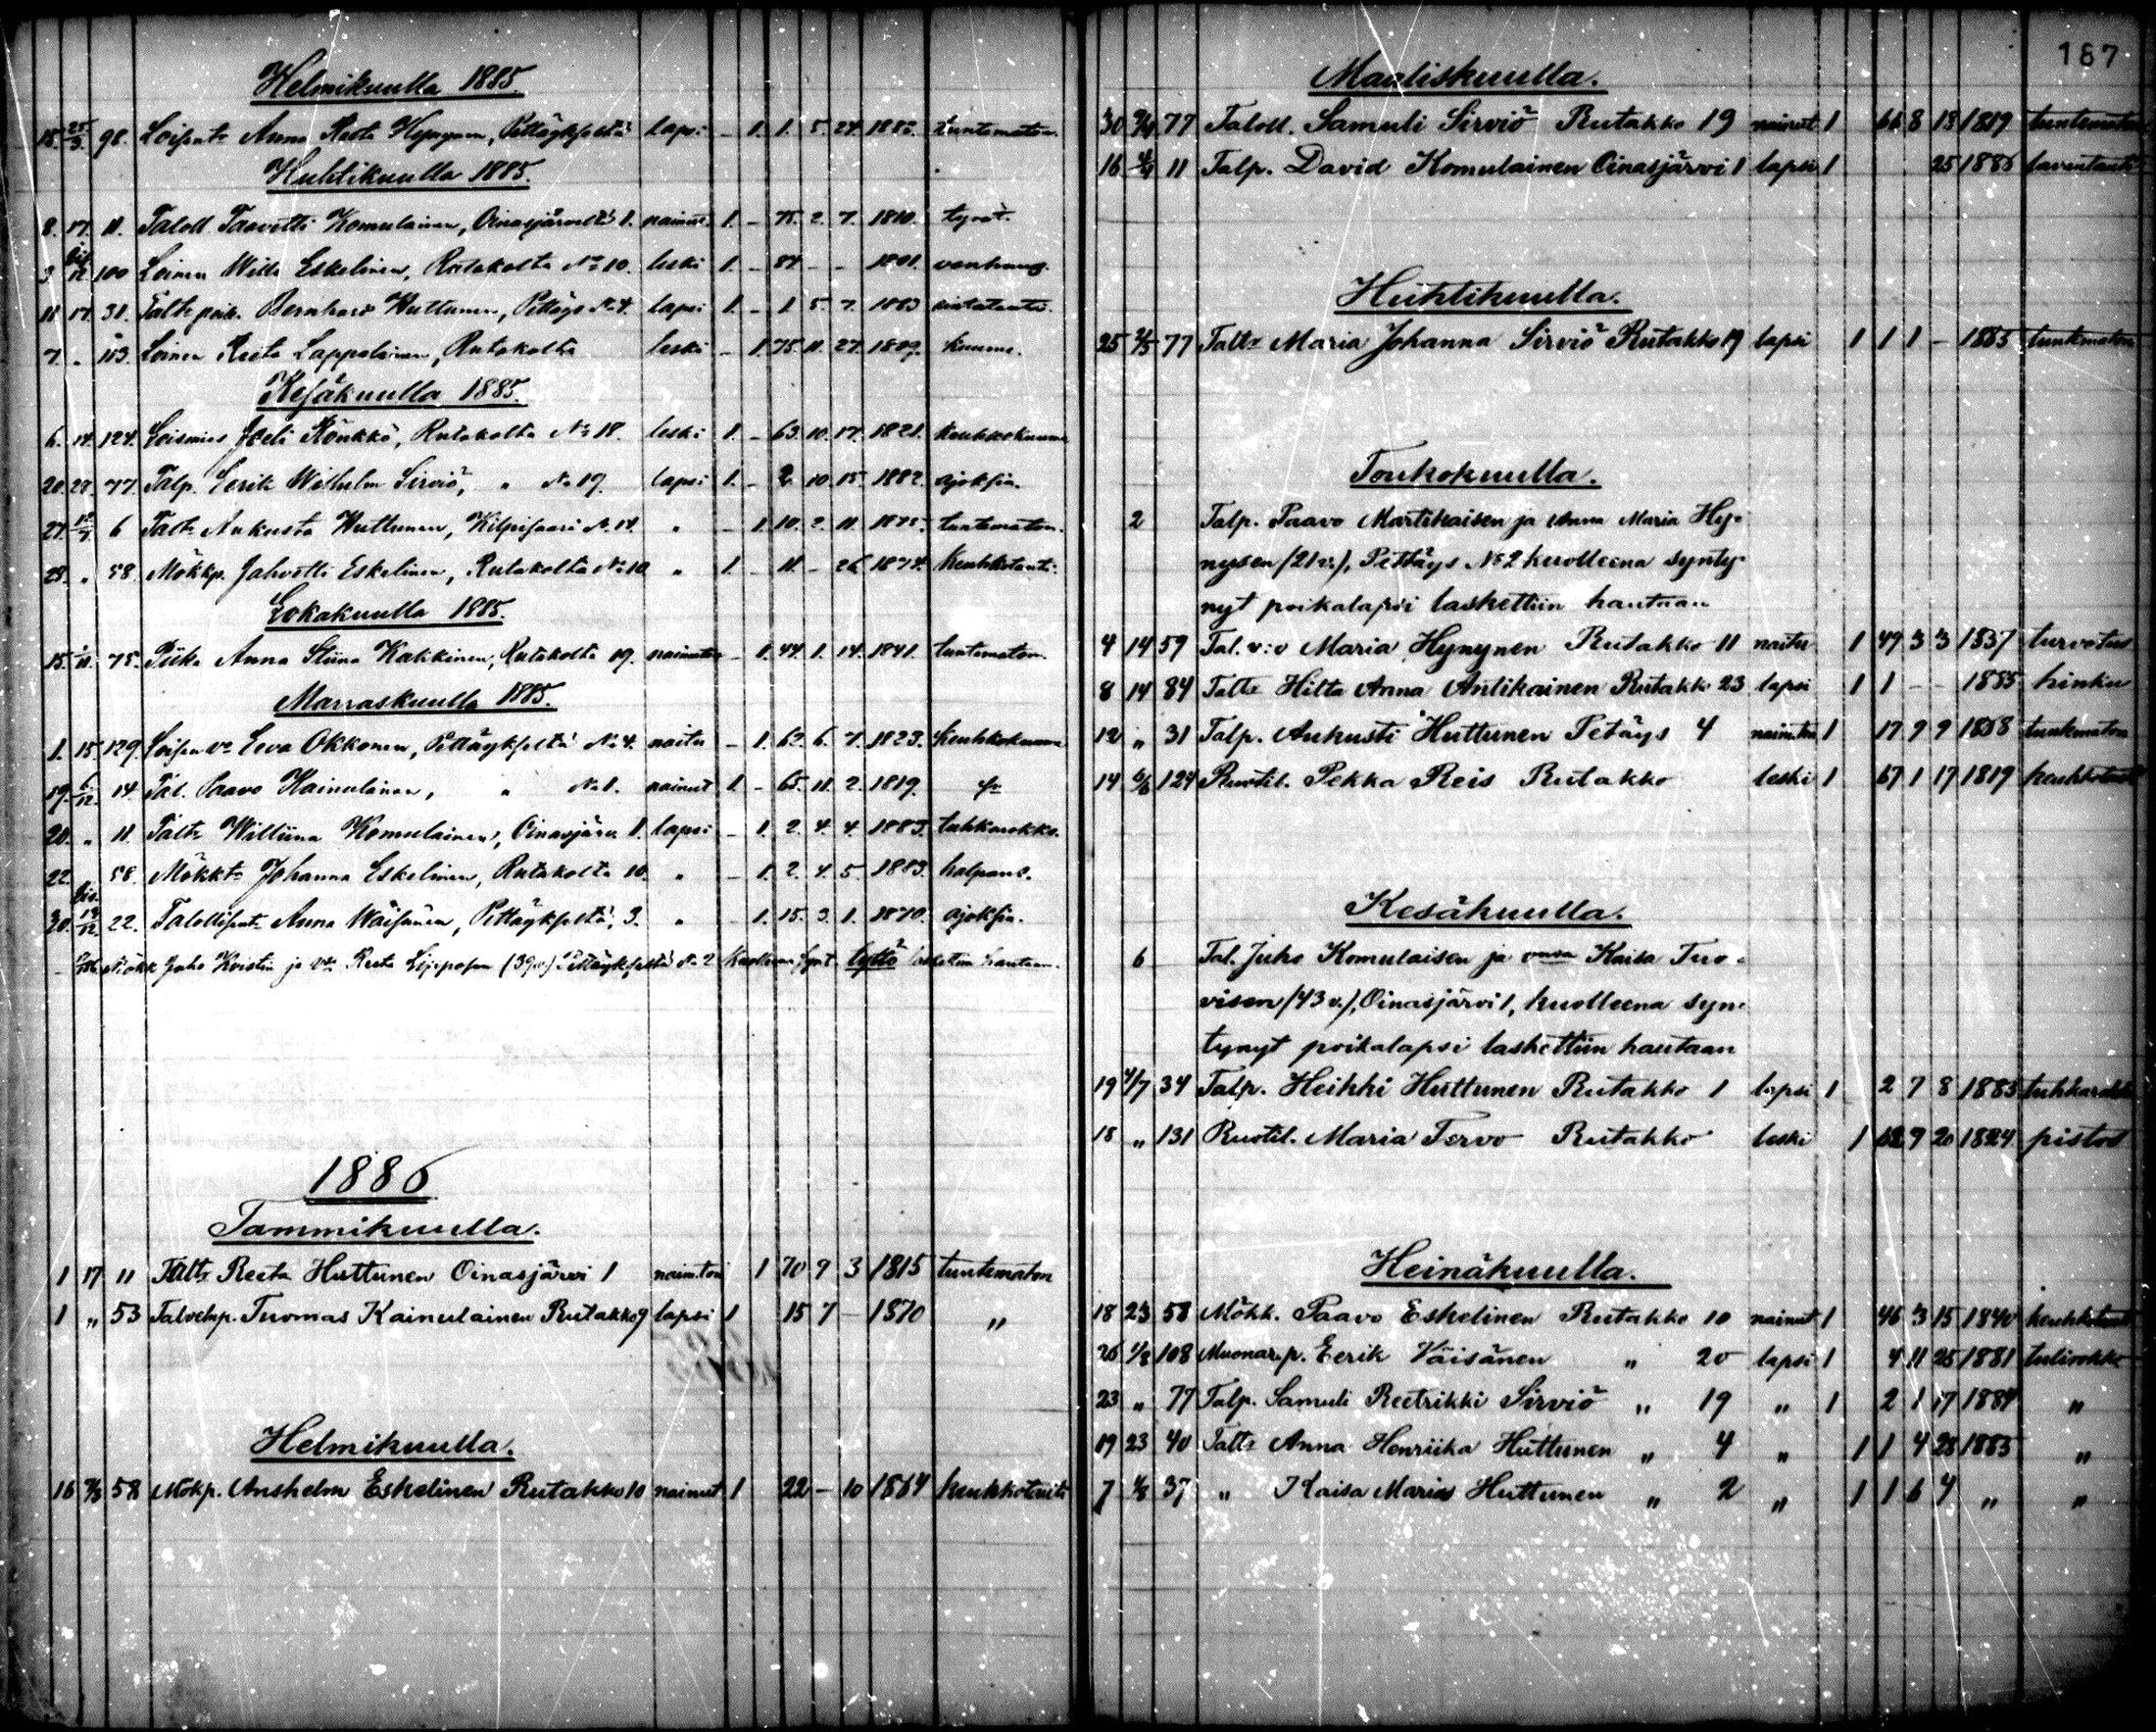 Helmikuulla 1885.
15. 25/3. 98. Loisent: Anna Reeta Hynynen, Pettäykseltä lapsi - 1. 1. 5. 24. 1883. tuntematon.
Huhtikuulla 1885.
8. 17. 11. Taloll Taavetti Komulainen, Oinasjärveltä 1. nainut. 1. - 75. 2. 7. 1810. tyrät.
3 12. 100 Loinen Eskelinen, Rutakolta No 10. leski 1. - 84 - - 1801. vanhuus.
11 17. 31. Talk poik. Bernhard Huttunen, Pettäys No 4. lapsi 1. - 1 5. 7. 1883
7. „ 103. Loinen Reeta Lappalainen, Rutakolta leski - 1. 75. 11. 27. 1809. kuume.
Kesäkuulla 1885.
6. 14. 124. Loismies Heli Könkkö, Rutakolta No 18. leski 1. - 63. 10. 17. 1821. keuhkokuume
20. 28. 77. Talp. Eerik Wilhelm Sirviö, „ No 19. lapsi 1. - 2 10. 15. 1882. ajoksia.
27. 6 Talt: Aukusta Huttunen, Kilpisaari No 14. „ - 1. 10. 2. 11. 1875. tuntematon.
28. „ 58. Mökkp. Jahvetti Eskelinen, Rutakolta No 10 „ 1. - 11 - 26. 1874. keuhkotauti.
Lokakuulla 1885.
15. 1/11. 75. Piika Anna Stiina Kakkinen, Rutakolta 19. naimaton - 1. 44. 1. 14. 1841. tuntematon.
Marraskuulla 1885.
1. 15. 129. Loisen v: Eeva Okkonen, Pettäykseltä No 4. naitu - 1. 62. 6. 7. 1823. keuhkokuume
19. 6/12. 14. Tal. Paavo Kainulainen, „ No 1. nainut 1. - 65. 11. 2. 1819.
20. „ 11. Talt: Williina Komulainen, Oinasjärv. 1. lapsi - 1. 2. 4. 4. 1883. tuhkarokko.
22. 58. Mökkt: Johanna Eskelinen, Rutakolta 10. „ - 1. 2. 4. 5. 1883. halpaus.
30. 13/12. 22. Talollisent: Anna Wäisänen, Pettäykseltä, 3. „ - 1. 15. 3. 1. 1870. ajoksia.
- Mökk Juho Kvistin ja v: Reeta Lipposen (39v.) Pettäykseltä No 2 kuolleena synt. tyttö laskettiin hautaan.
1886
Tammikuulla.
1 17 11 Talt: Reeta Huttunen Oinasjärvi 1 naim.ton 1 70 9 3 1815 tuntematon
1 „ 53 Talvelnp. Tuomas Kainulainen Rutakko 9 lapsi 1 15 7 - 1870 „
Helmikuulla.
16 58 Mökp. Anshelm Eskelinen Rutakko 10 nainut 1 22 - 10 1864 keuhkotauti
187
Maaliskuulla.
30 77 Taloll. Samuli Sirviö Rutakko 19 nainut 1 66 8 13 1819 tuntematon
16 4/4 11 Talp. David Komulainen Oinasjärvi 1 lapsi 1 25 1886
Huhtikuulla.
25 2/5 77 Talt: Maria Johanna Sirviö Rutakko 19 lapsi 1 1 1 - 1885 tuntematon
Toukokuulla.
2 Talp. Paavo Martikaisen ja Anna Maria Hy-
nysen (21 v.), Pettäys No 2 kuolleena synty-
nyt poikalapsi laskettiin hautaan
4 14 59 Tal. v:o Maria Hynynen Rutakko 11 naitu 1 49 3 3 1837 turvotus
8 14 84 Talt: Hilta Anna Antikainen Rutakko 23 lapsi 1 1 - - 1885 hinku
12 „ 31 Talp. Aukusti Huttunen Petäys 4 naim.ton 1 17 9 9 1868 tuntematon
14 6/6 124 Ruotil. Pekka Reis Rutakko leski 1 67 1 17 1819 keuhkotauti
Kesäkuulla.
6 Tal. Juho Komulaisen ja Kaisa Tuo-
visen (43 v.), Oinasjärvi 1, kuolleena syn-
tynyt poikalapsi laskettiin hautaan
19 4/7 34 Talp. Heikki Huttunen Rutakko 1 lapsi 1 2 7 8 1883 tuhkarokko
18 „ 131 Ruotil. Maria Tervo Rutakko leski 1 62 9 20 1824 pistos
Heinäkuulla.
18 23 58 Mökk. Paavo Eskelinen Rutakko 10 nainut 1 46 3 15 1840 keuhkotauti
26 1/8 108 Muonar.p. Eerik Väisänen „ 20 lapsi 1 4 11 25 1881 tulirokko
23 „ 77 Talp. Samuli Reetrikki Sirviö „ 19 „ 1 2 1 17 1884 „
19 23 40 Talt: Anna Henriika Huttunen „ 4 „ 1 1 4 28 1885 „
7 1/8 37 „ Kaisa Maria Huttunen „ 2 „ 1 1 6 4 „ „